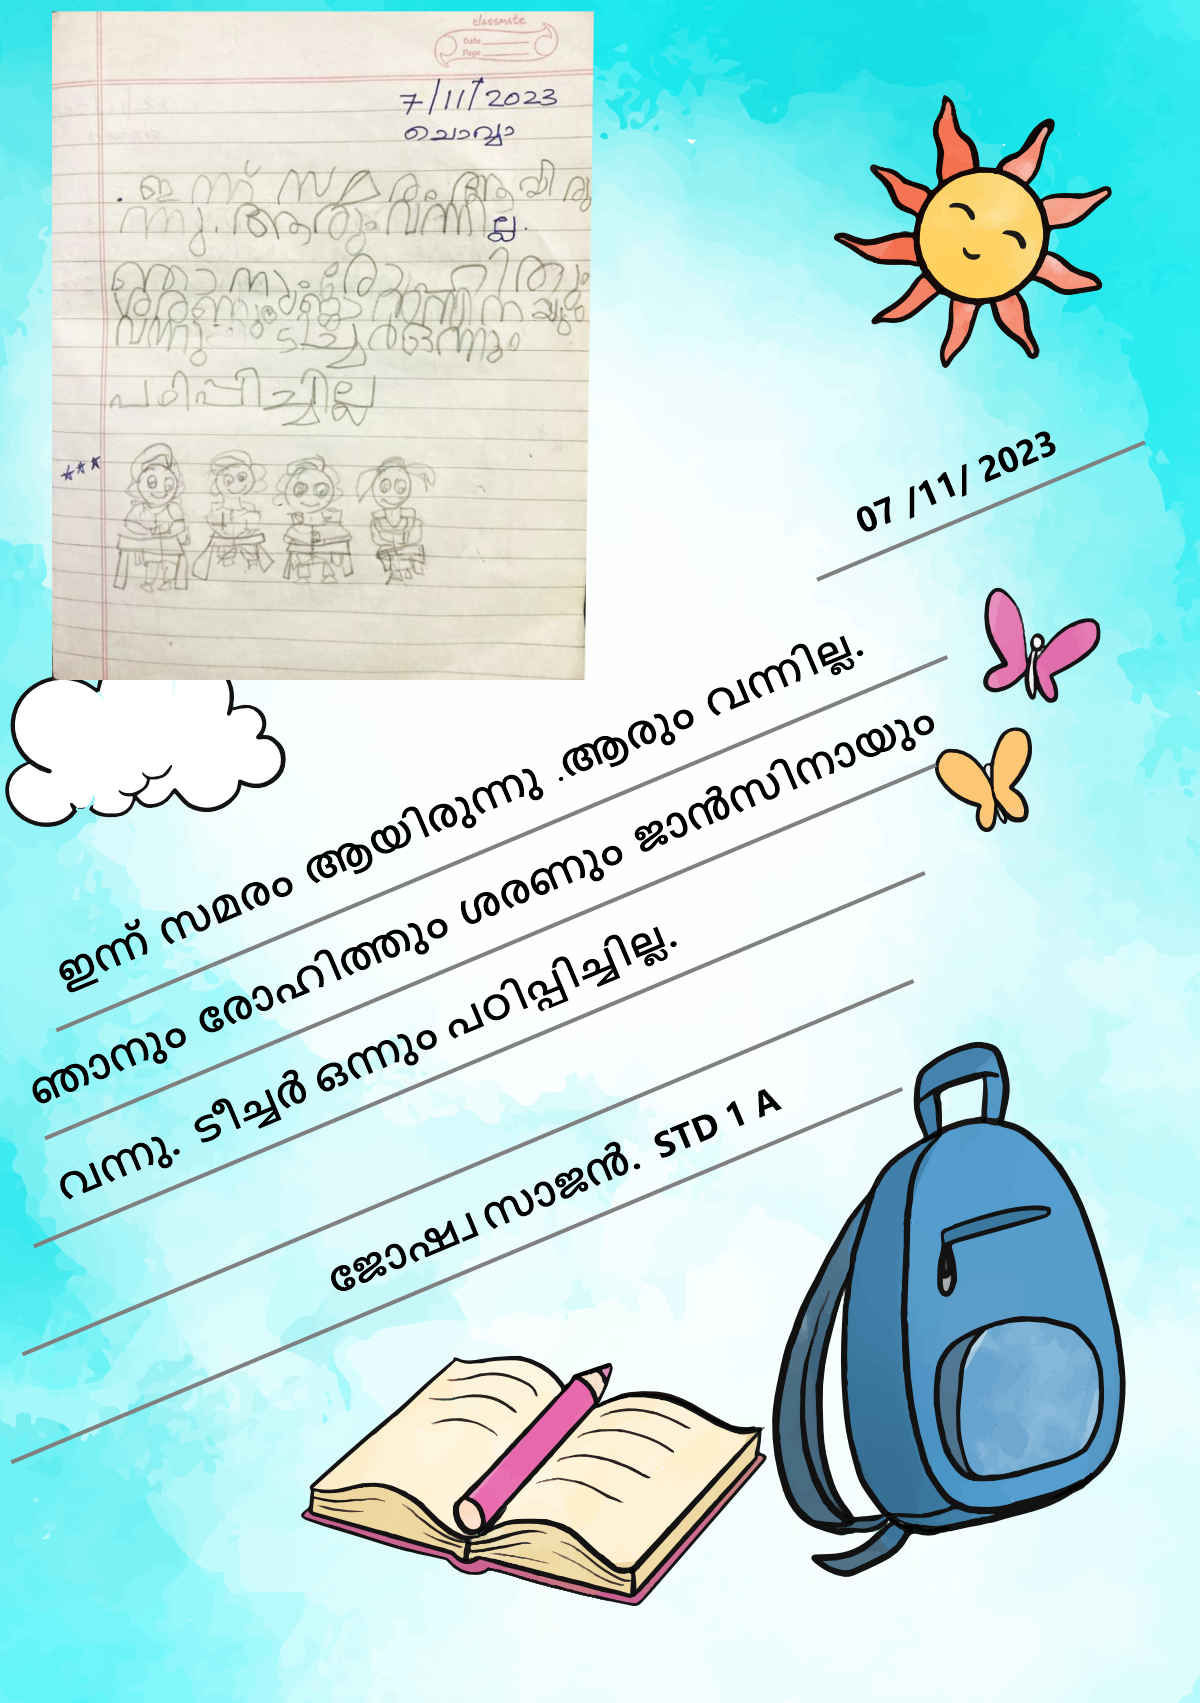 classmate
Date
Page
7/11/2023
ചൊവ്വ
ഇന്ന് സമരം ആയിരു
ന്നു. ആരും വന്നില്ല.
വന്നു
പഠിപ്പിച്ചില്ല
07 /11/ 2023
ഇന്ന് സമരം ആയിരുന്നു .ആരും വന്നില്ല.
ഞാനും രോഹിത്തും ശരണും ജാൻസിനായും
വന്നു. ടീച്ചർ ഒന്നും പഠിപ്പിച്ചില്ല.
ജോഷ്വ സാജൻ. STD 1 A